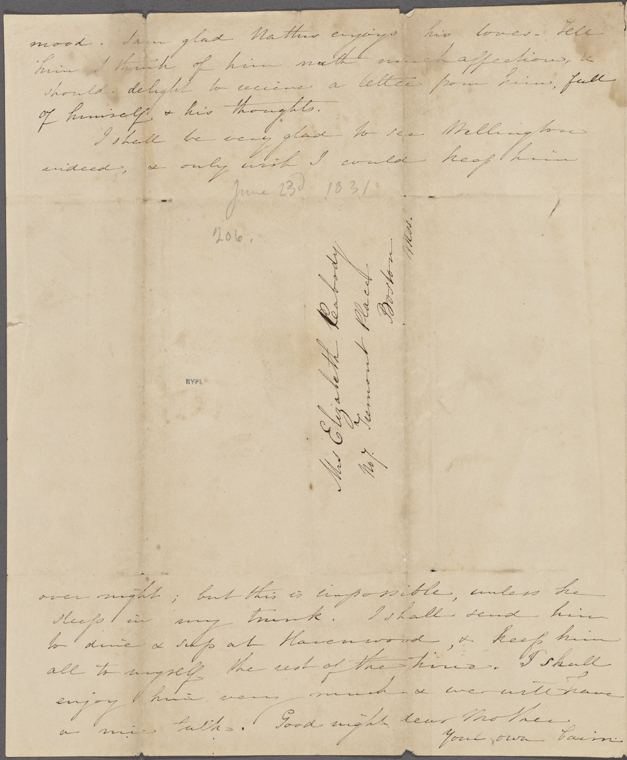 mood. I am glad Nathus enjoys his loves. Tell
him I think of him with much affection, &
should delight to recieve a letter from him, full
of himself & his thoughts.
I shall be very glad to see Wellington
indeed, & only wish I could keep him
June 23d 1831
206.
Mrs Elizabeth Peabody
No 7. Tremont Place
Boston
NYPL
over night; but this is impossible, unless he
sleep in my trunk. I shall send him
to dine & sup at Havenwood, & keep him
all to myself the rest of the time. I shall
enjoy him very much & we will have
a nice talk. Good night dear Mother
Your own